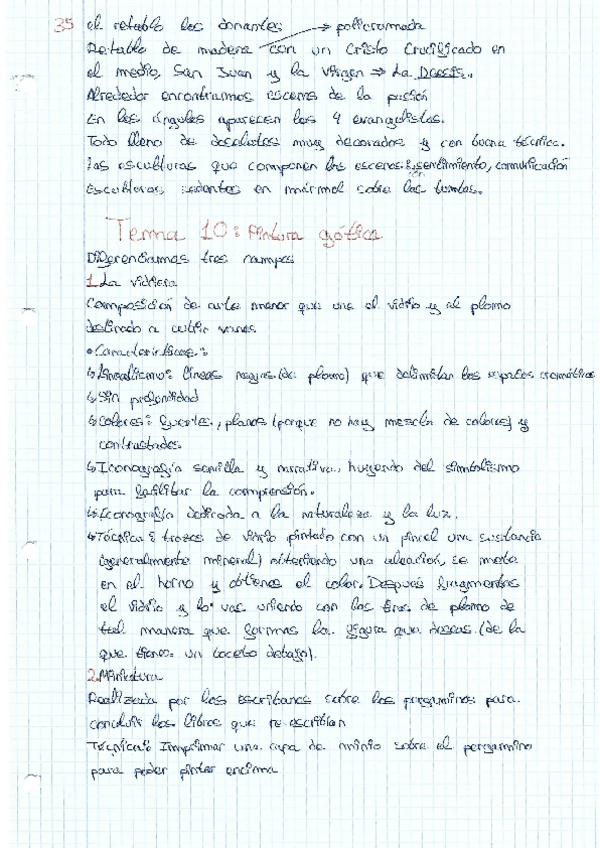 35 el retablo los donantes → policromada
Retablo de madera con un Cristo Crucificado en
el medio, San Juan y la Virgen ⇒ La Deesis.
Alrededor encontramos escena de la pasión
En los ángulos aparecen los 4 evangelistas.
Todo lleno de doseletes muy decorados y con buena técnica.
Las esculturas que componen las escenas: sentimiento, comunicación
Esculturas sedentes en mármol sobre las tumbas.
Tema 10: Pintura gótica
Diferenciamos tres campos
1. La vidriera
Composición de arte menor que une el vidrio y el plomo
destinado a cubrir vanos
• Características:
↳ Linealismo: líneas negras (de plomo) que delimitan los espacios cromáticos
↳ Sin profundidad
↳ Colores: fuertes, planos (porque no hay mezcla de colores) y
contrastados.
↳ Iconografía sencilla y narrativa, huyendo del simbolismo
para facilitar la comprensión.
↳ Iconografía dedicada a la naturaleza y la luz.
↳ Técnica: trozos de vidrio pintado con un pincel una sustancia
(generalmente mineral) obteniendo una aleación, se mete
en el horno y obtienes el color. Después fragmentas
el vidrio y lo vas uniendo con las tiras de plomo de
tal manera que formas la figura que deseas. (de la
que tienes un boceto debajo).
2. Miniatura
Realizada por los escribanos sobre los pergaminos para
concluir los libros que re-escribían
Técnica: Imprimar una capa de minio sobre el pergamino
para poder pintar encima